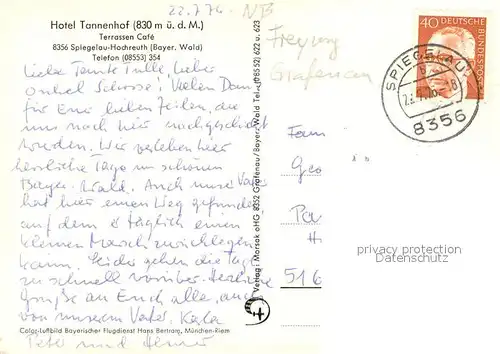 22.7.76 NB
Hotel Tannenhof (830 m ü. d. M.)
Terrassen Café
8356 Spiegelau-Hochreuth (Bayer. Wald)
Telefon (08553) 354
Freyung
Grafenau
40 DEUTSCHE BUNDESPOST
SPIEGELAU
8356
Liebe Tante Tulle, lieber
Onkel Schosse! Vielen Dank
für Eure lieben Zeilen, die
uns noch hier nachgeschickt
wurden. Wir verleben hier
herrliche Tage im schönen
Bayer. Wald. Auch unser Vater
hat hier einen Weg gefunden
auf dem er täglich einen
kleinen Marsch zurücklegen
kann. Leider gehen die Tage
zu schnell vorüber. Herzliche
Grüße an Euch alle, auch
von unserem Vater.
Peter und
Verlag: Morsak oHG 8352 Grafenau/Bayer. Wald Tel. (0 85 52) 622 u. 623
Fam
Geo
Pa
H
516
privacy protection
Datenschutz
Color-Luftbild Bayerischer Flugdienst Hans Bertram, München-Riem